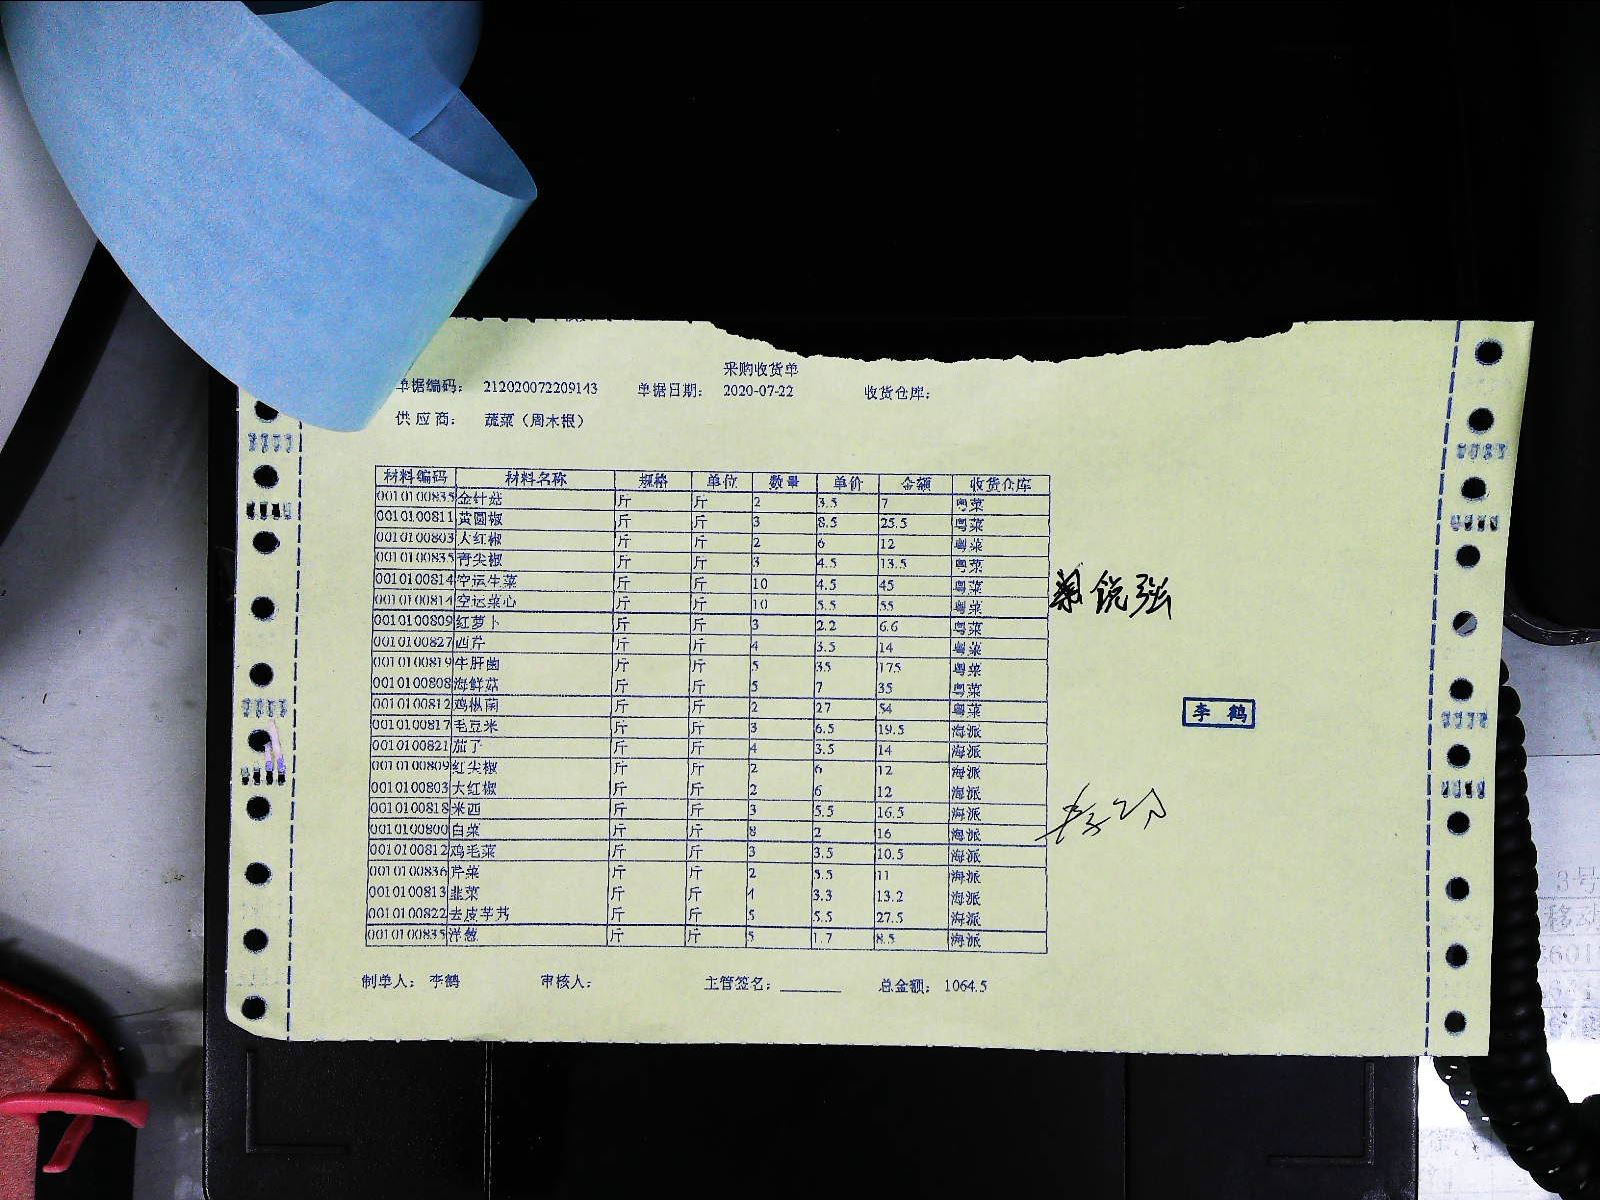 采购收货单
单据编码： 212020072209143 单据日期： 2020-07-22 收货仓库：
供 应 商： 蔬菜（周木根）
材料编码 材料名称 规格 单位 数量 单价 金额 收货仓库
0010100835 金针菇 斤 斤 2 3.5 7 粤菜
0010100811 黄圆椒 斤 斤 3 8.5 25.5 粤菜
0010100803 大红椒 斤 斤 2 6 12 粤菜
0010100835 青尖椒 斤 斤 3 4.5 13.5 粤菜
0010100814 空运生菜 斤 斤 10 4.5 45 粤菜
0010100814 空运菜心 斤 斤 10 5.5 55 粤菜
0010100809 红萝卜 斤 斤 3 2.2 6.6 粤菜
0010100827 西芹 斤 斤 4 3.5 14 粤菜
0010100819 牛肝菌 斤 斤 5 35 175 粤菜
0010100808 海鲜菇 斤 斤 5 7 35 粤菜
0010100812 鸡枞菌 斤 斤 2 27 54 粤菜
0010100817 毛豆米 斤 斤 3 6.5 19.5 海派
0010100821 茄子 斤 斤 4 3.5 14 海派
0010100809 红尖椒 斤 斤 2 6 12 海派
0010100803 大红椒 斤 斤 2 6 12 海派
0010100818 米西 斤 斤 3 5.5 16.5 海派
0010100800 白菜 斤 斤 8 2 16 海派
0010100812 鸡毛菜 斤 斤 3 3.5 10.5 海派
0010100836 芹菜 斤 斤 2 5.5 11 海派
0010100813 韭菜 斤 斤 4 3.3 13.2 海派
0010100822 去皮芋艿 斤 斤 5 5.5 27.5 海派
0010100835 洋葱 斤 斤 5 1.7 8.5 海派
锐强
李 鹤
制单人： 李鹤 审核人： 主管签名： 总金额： 1064.5
3号
移动